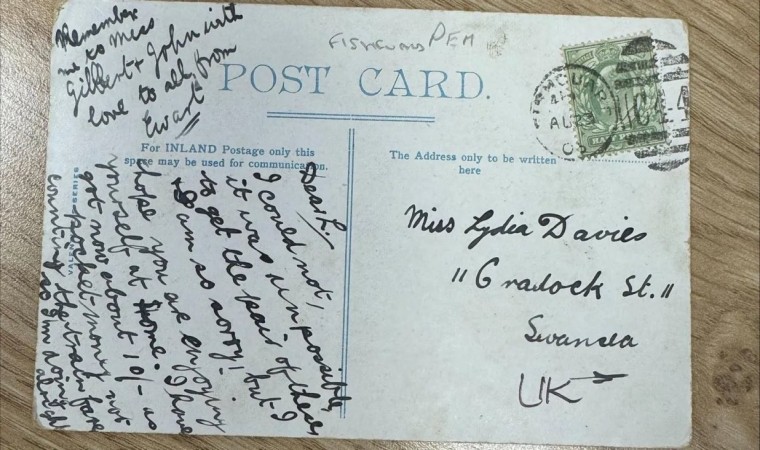 Remember
me to Miss
Gilbert & John with
love to all from
Ewart
FISHGUARD PEM
POST CARD.
For INLAND Postage only this
space may be used for communication.
The Address only to be written
here
SERIES
Dear L,
I could not,
it was unpossible,
to get the pair of these
but I
am so sorry! I
hope you are enjoying
yourself at Home. I have
got now about 10/- as
pocket-money not
counting the train fare
so I'm doing
alright
AU 23
Miss Lydia Davies
"Cradock St."
Swansea
UK